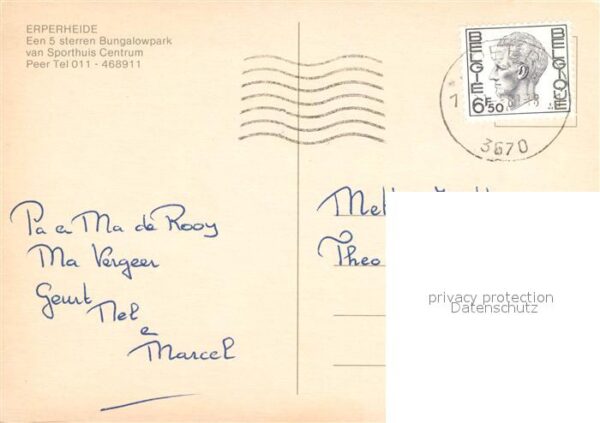 ERPERHEIDE
Een 5 sterren Bungalowpark
van Sporthuis Centrum
Peer Tel 011 - 468911
BELGIE
BELGIQUE
6F50
3670
Pa en Ma de Rooy
Ma Vergeer
Geurt
Nel
e
Marcel
Theo
privacy protection
Datenschutz